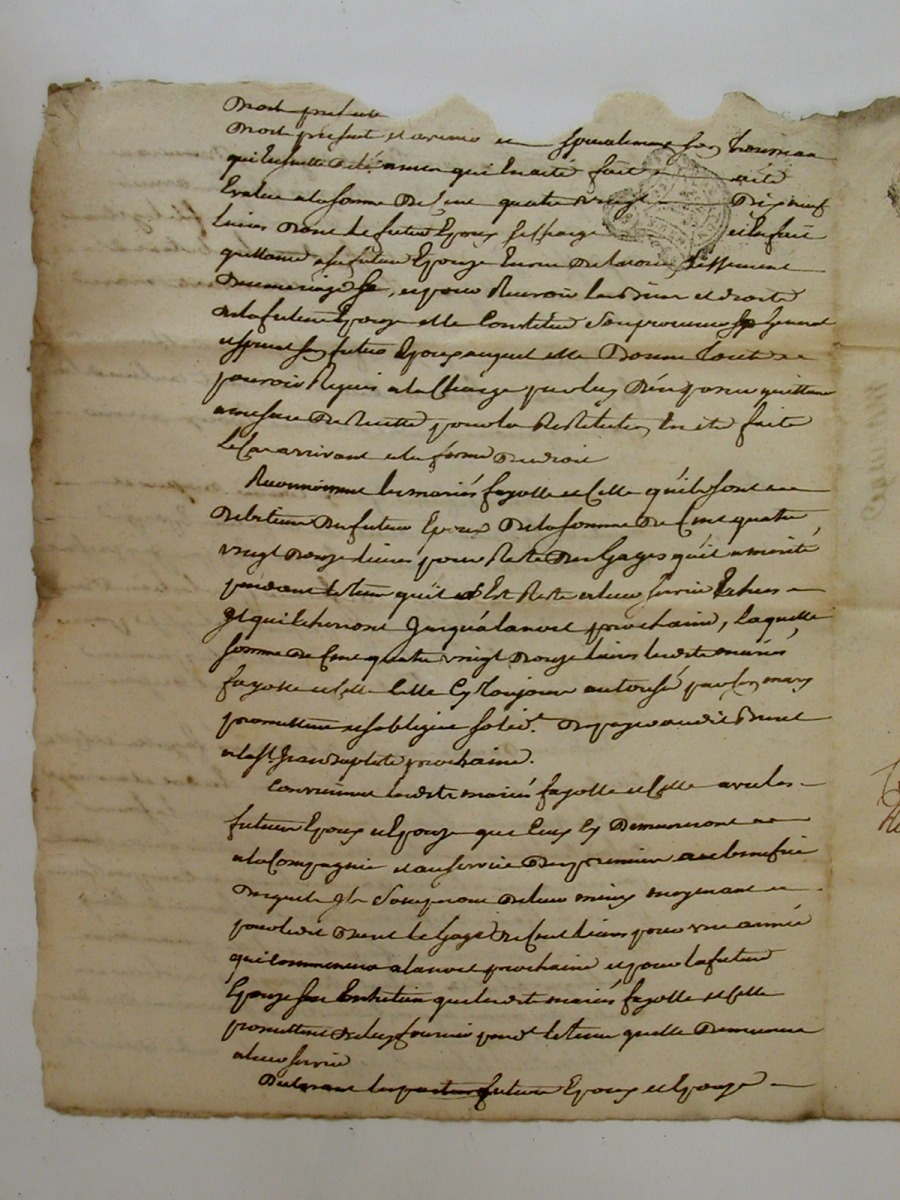 Droit present
Droit present et avenir et specialement son Trousseau
qui ensuitte a été fait
Evalue a la somme de Cent quatre vingt Dix neuf
livres Dont le futur Epoux se charge et en fait
quittance a sa future Epouze
et pour Recevoir les Biens et droits
de la future Epouze elle Constitue son procureur general
et special son futur Epoux auquel elle Donne tout
pouvoir Requis a la Charge par luy d'en passer quittance
a mesure de Recette pour la Restitution En être faite
le Cas arrivant et la forme de droit
Reconnoissent les mariés fayolle et Celle qu'ils sont
Debiteurs du futur Epoux de la somme de Cent quatre
vingt Douze livres pour Reste des Gages qu'il a merité
pendant le tems qu'il Est Resté a leur service
Jusqu'a la noel prochaine, laquelle
somme de Cent quatre vingt Douze livres lesdits mariés
fayolle et Celle Celle Cy toujours autorisé par son mary
promettent et s'obligent solid.t de payer audit Brunet
a la St Jean Baptiste prochaine.
Conviennent lesdits mariés fayolle et Celle avec les
futurs Epoux et Epouze que Ceux Cy Demeureront
a la Compagnie et au service des premiers au benefice
Desquels Ils s'occuperont de leur mieux moyenant
pour ledit Brunet le Gage de Cent livres pour une année
qui commencera a la noel prochaine et pour la future
Epouze son Entretien que lesdits mariés fayolle et Celle
promettent de luy fournir pend.t le tems quelle Demeurera
a leur service
Declarant les parties futurs Epoux et Epouze